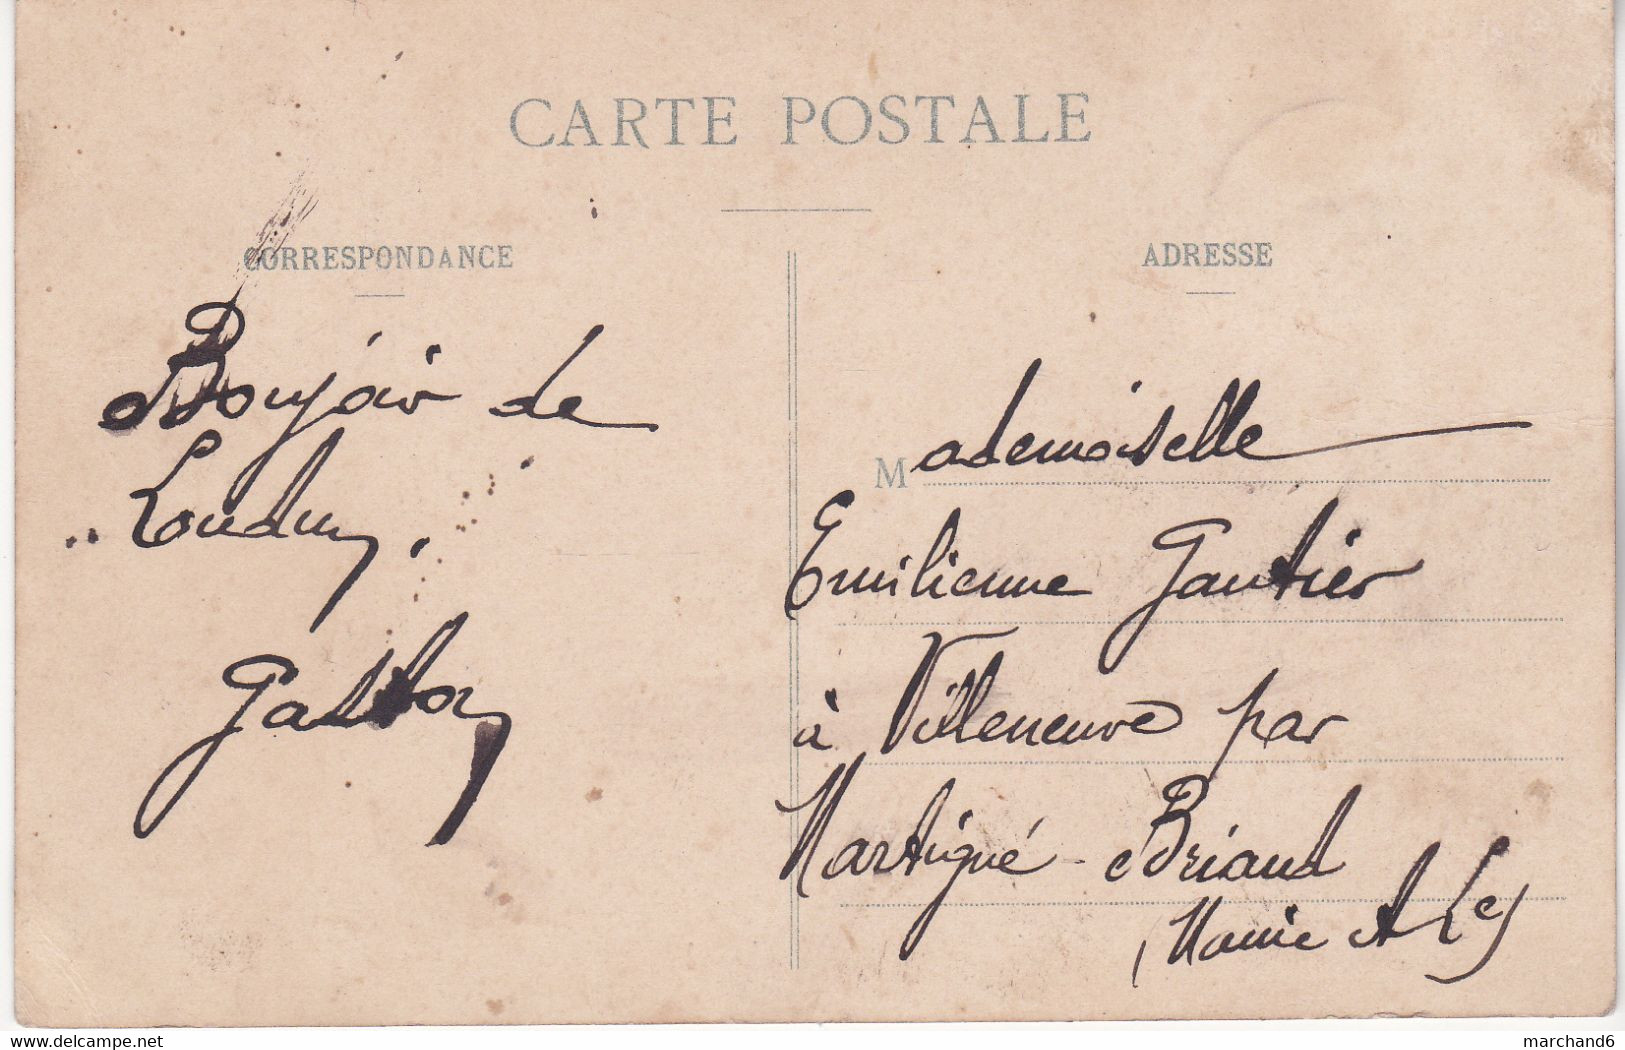 CARTE POSTALE
CORRESPONDANCE
ADRESSE
Bonjour de
Loudun.
Gaston
Mademoiselle
Emilienne Gautier
à Villeneuve par
Martigné-Briand
(Maine et Lre)
delcampe.net
marchand6